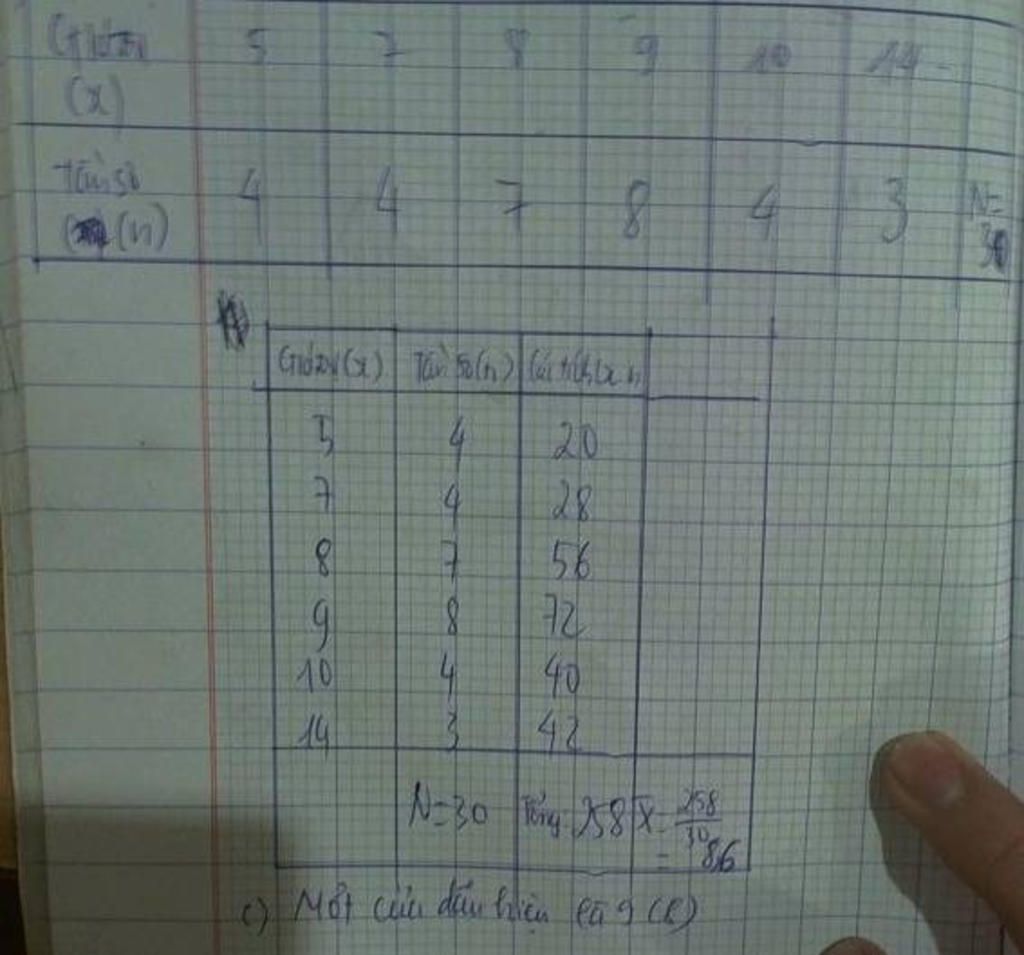 Giá trị 5 7 8 9 10 14
(x)
Tần số 4 4 7 8 4 3 N=
(n) 30
Giá trị (x) Tần số (n) Các tích (x.n)
5 4 20
7 4 28
8 7 56
9 8 72
10 4 40
14 3 42
N=30 Tổng: 258 X̄ = 258/30
= 8,6
c) Mốt của dấu hiệu là 9